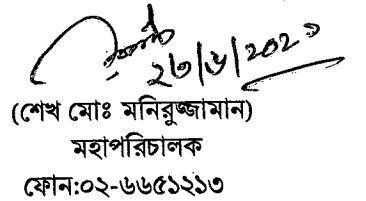 ২৩/৬/২০২১
(শেখ মোঃ মনিরুজ্জামান)
মহাপরিচালক
ফোন:০২-৬৬৫১২১৩